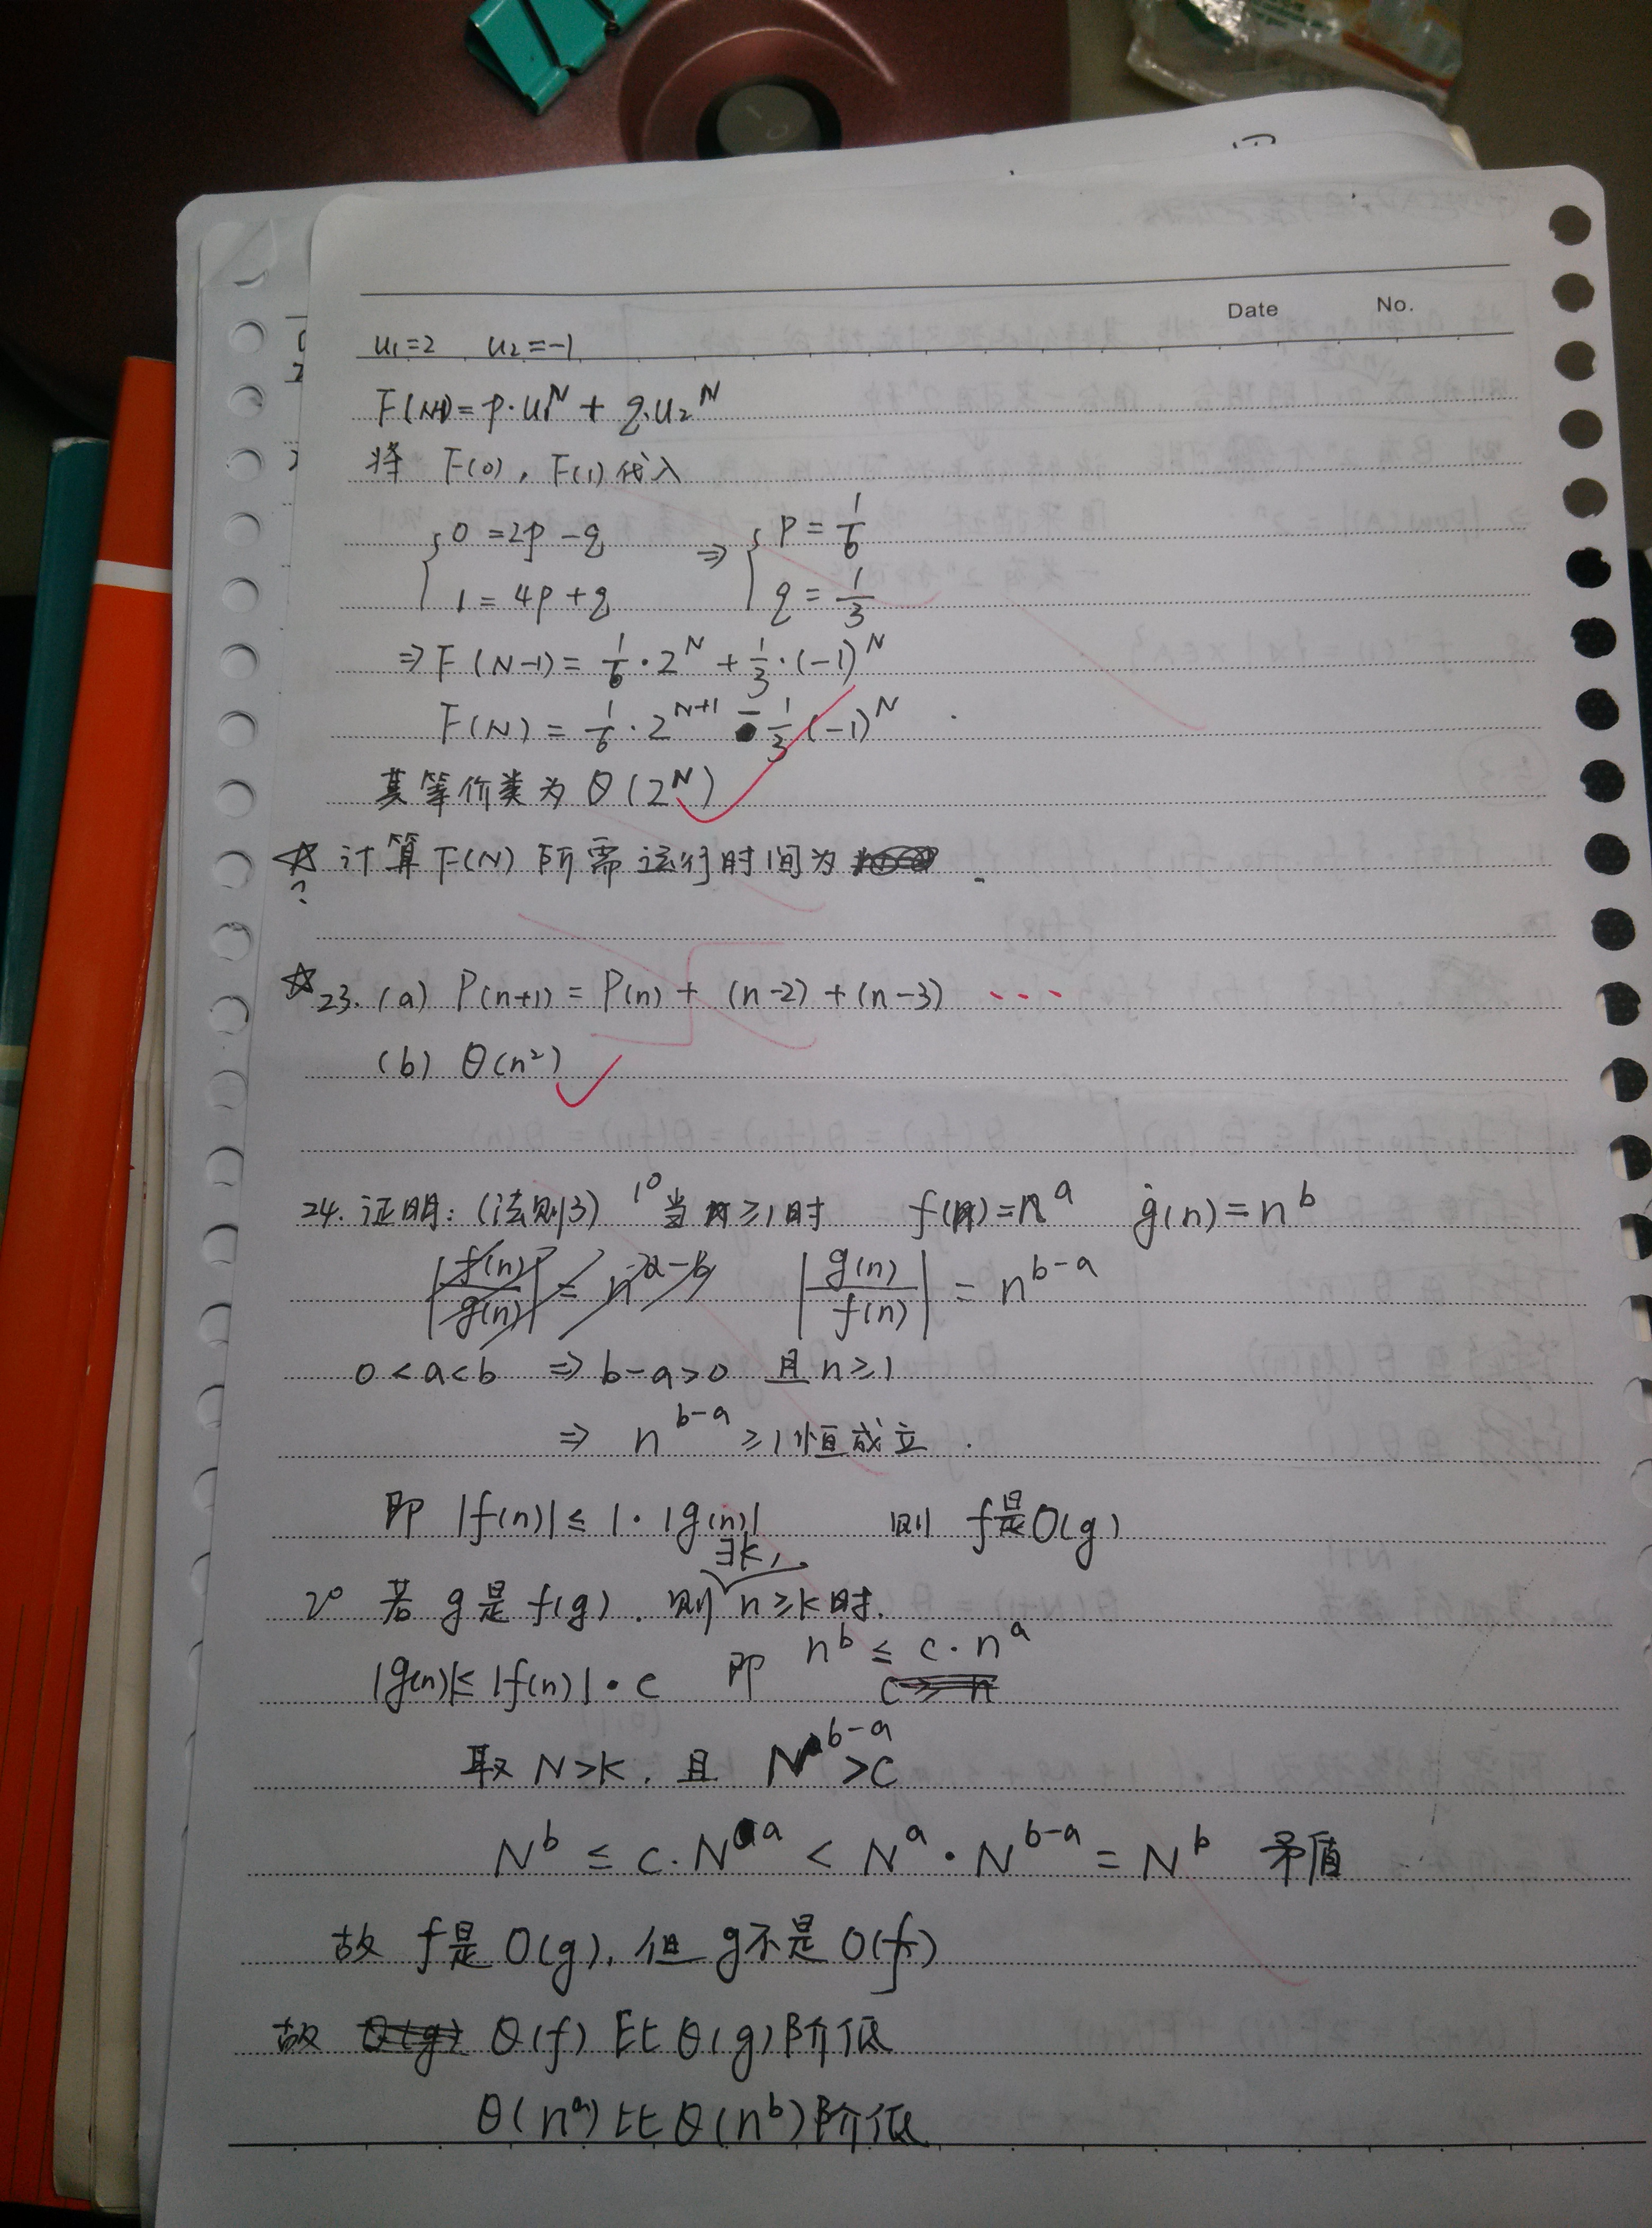 Date No.
u₁=2 u₂=-1
F(N-1)=p·u₁^N + q·u₂^N
将 F(0), F(1)代入
{0=2p-q ⇒ {p=1/6
1=4p+q q=1/3
⇒F(N-1)=1/6·2^N+1/3·(-1)^N
F(N)=1/6·2^(N+1) - 1/3(-1)^N.
其等价类为 θ(2^N)
☆ 计算F(N)所需运行时间为 .
?
☆23.(a) P(n+1)=P(n)+(n-2)+(n-3) ···
(b) θ(n²)
24.证明:(法则3) 1° 当n≥1时 f(n)=n^a g(n)=n^b
|f(n)/g(n)|=n^(a-b) |g(n)/f(n)|=n^(b-a)
0<a<b ⇒ b-a>0 且n≥1
⇒ n^(b-a)≥1恒成立.
即 |f(n)|≤1·|g(n)| 则 f是O(g)
∃k,
2° 若 g是f(g). 则 n≥k时.
|g(n)|≤|f(n)|·c 即 n^b≤c·n^a
c≥n
取N>k, 且 N^(b-a)>c
N^b≤c·N^a<N^a·N^(b-a)=N^b 矛盾
故 f是O(g), 但g不是O(f)
故 θ(g) θ(f)比θ(g)阶低
θ(n^a)比θ(n^b)阶低